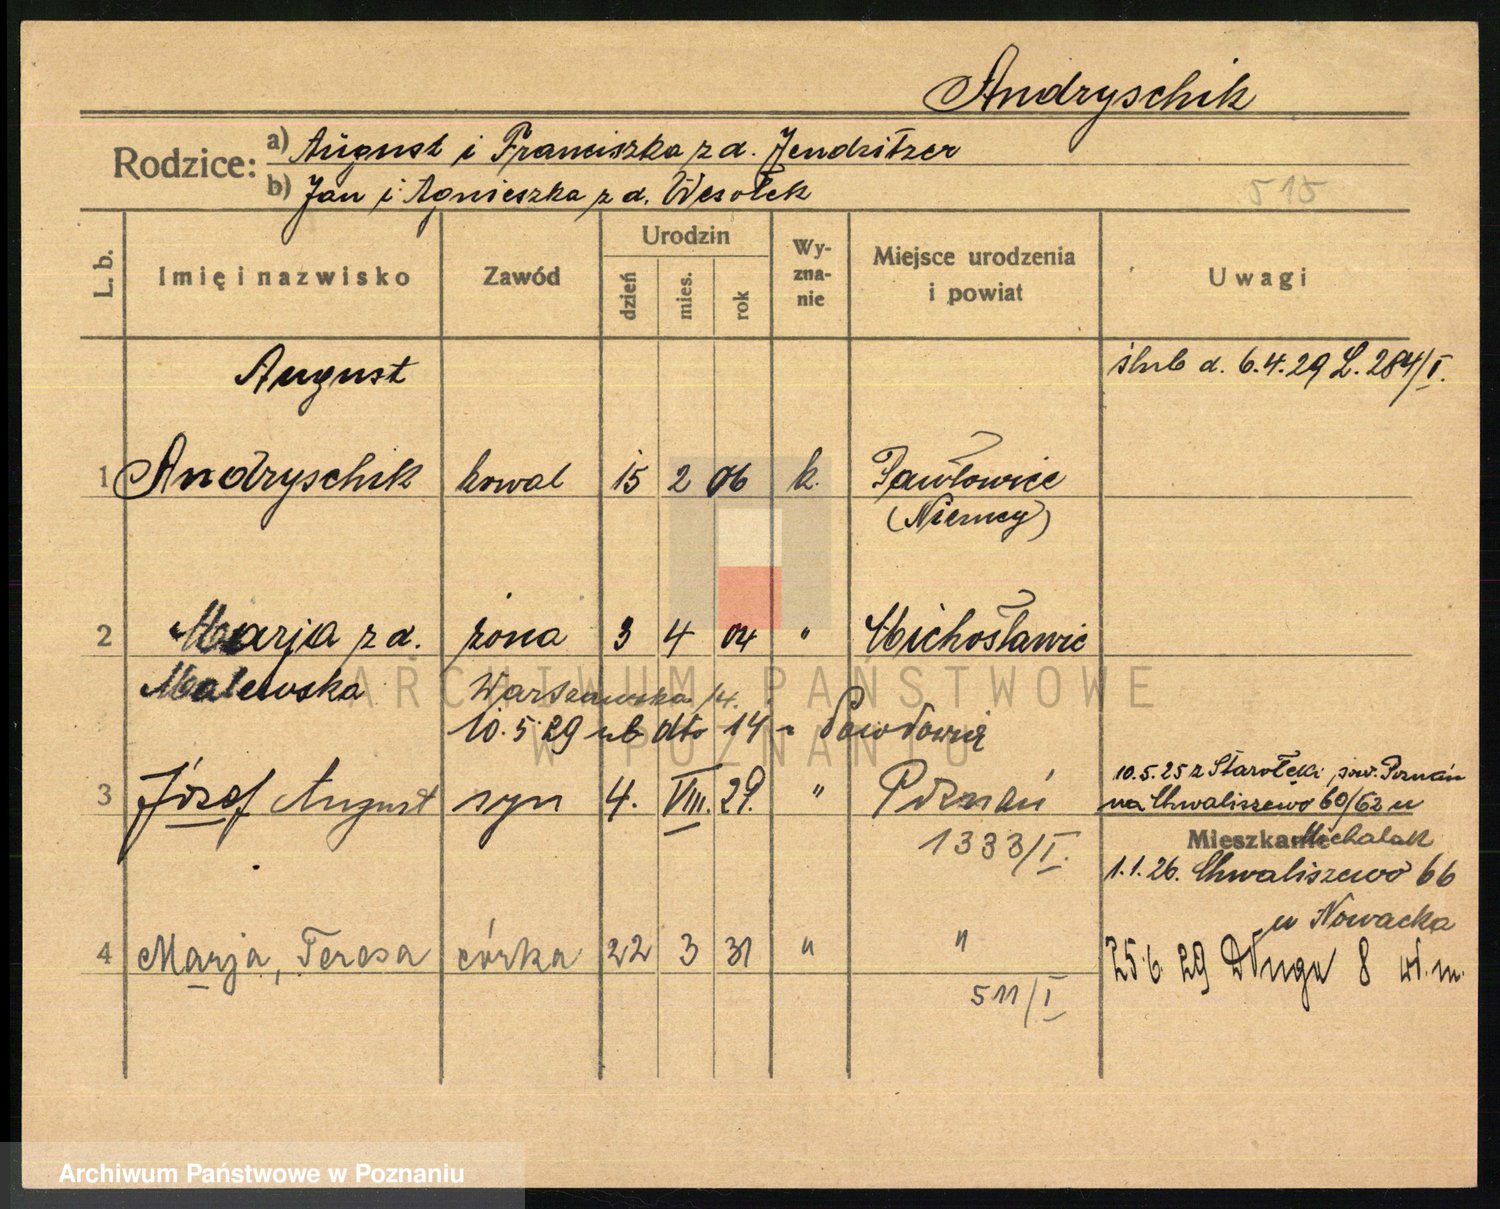 Andryschik
Rodzice: a) August i Franciszka z d. Jendritzer
b) Jan i Agnieszka z d. Wesołek
515
L. b.
Imię i nazwisko
Zawód
Urodzin
dzień
mies.
rok
Wy-
zna-
nie
Miejsce urodzenia
i powiat
Uwagi
August
ślub d. 6.4.29 L. 284/I.
1 Andryschik kowal 15 2 06 k. Pawłowice
(Niemcy)
2 Marja z d. żona 3 4 04 "
Malewska Warszawska 14.
10.5.29 dto 14
3 Józef August syn 4. VIII. 29. " Poznań
1333/I.
10.5.25 z Starołęki, pow. Poznań
na Chwaliszewo 60/62 u
Mieszkanie Michalak
1.1.26. Chwaliszewo 66
u Nowacka
4 Marja, Teresa córka 22 3 31 " "
511/I
25.6.29 Długa 8 wł. m.
ARCHIWUM PAŃSTWOWE
W POZNANIU
Archiwum Państwowe w Poznaniu